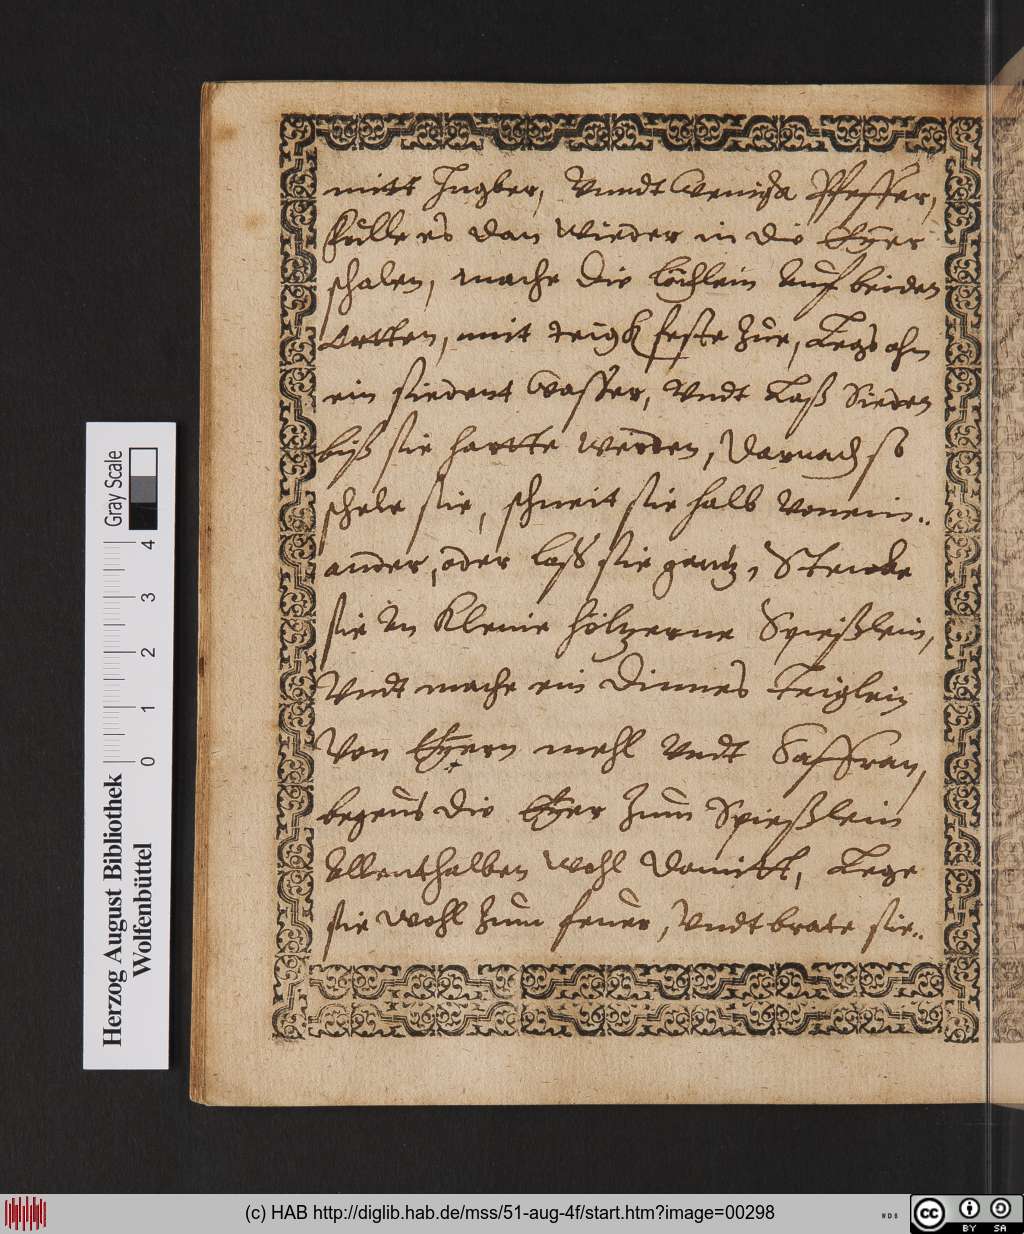 mitt Ingber, Vnndt Wenigk Pfeffer,
Fülle es dan wieder in die Eÿer
schalen, mache die löchlein auf beiden
Ortten, mit teigk feste zue, Legs ahn
ein siedent Wasser, Vndt Laß Sieden
biß sie hartte werden, Darnach so
schele sie, schneit sie halb Vonein..
ander, oder laß sie gantz, Stecke
sie an Kleine höltzerne Spießlein,
Vndt mache ein Dinnes Teiglein
Von Eÿern mehl Vndt Saffran,
begeus die Eÿer zum Spießlein
Allenthalben Wohl Damitt, Lege
sie wohl zum feuer, Vndt brate sie..
Herzog August Bibliothek
Wolfenbüttel
Gray Scale
0 1 2 3 4
(c) HAB http://diglib.hab.de/mss/51-aug-4f/start.htm?image=00298
WDB
cc BY SA